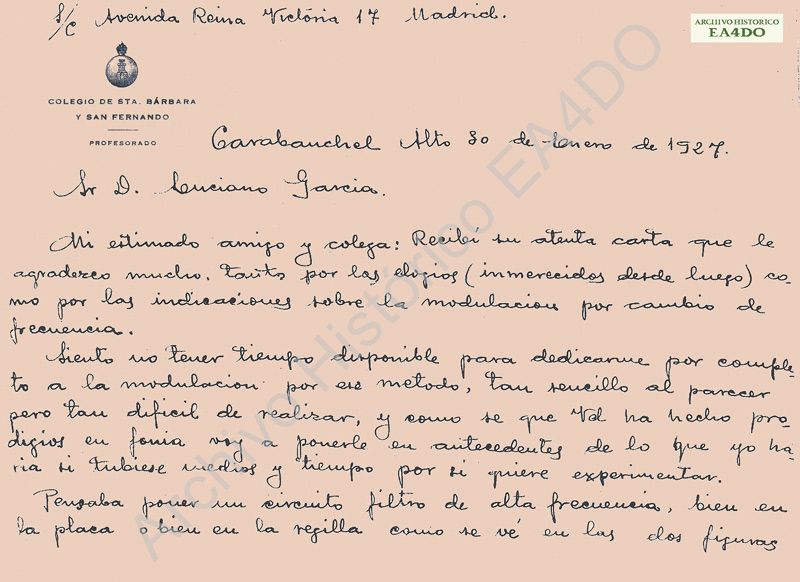 S/C Avenida Reina Victória 17 Madrid.
ARCHIVO HISTORICO
EA4DO
COLEGIO DE STA. BÁRBARA
Y SAN FERNANDO
PROFESORADO
Carabanchel Alto 30 de Enero de 1927.
Sr D. Luciano Garcia.
Mi estimado amigo y colega: Recibí su atenta carta que le
agradezco mucho, tanto por los elogios (inmerecidos desde luego) co-
mo por las indicaciones sobre la modulacion por cambio de
frecuencia.
Siento no tener tiempo disponible para dedicarme por comple-
to a la modulacion por ese metodo, tan sencillo al parecer
pero tan dificil de realizar, y como se que Vd ha hecho pro-
digios en fonia voy a ponerle en antecedentes de lo que yo ha-
ria si tubiese medios y tiempo por si quiere experimentar.
Pensaba poner un circuito filtro de alta frecuencia, bien en
la placa o bien en la regilla como se vé en las dos figuras
Archivo Histórico EA4DO